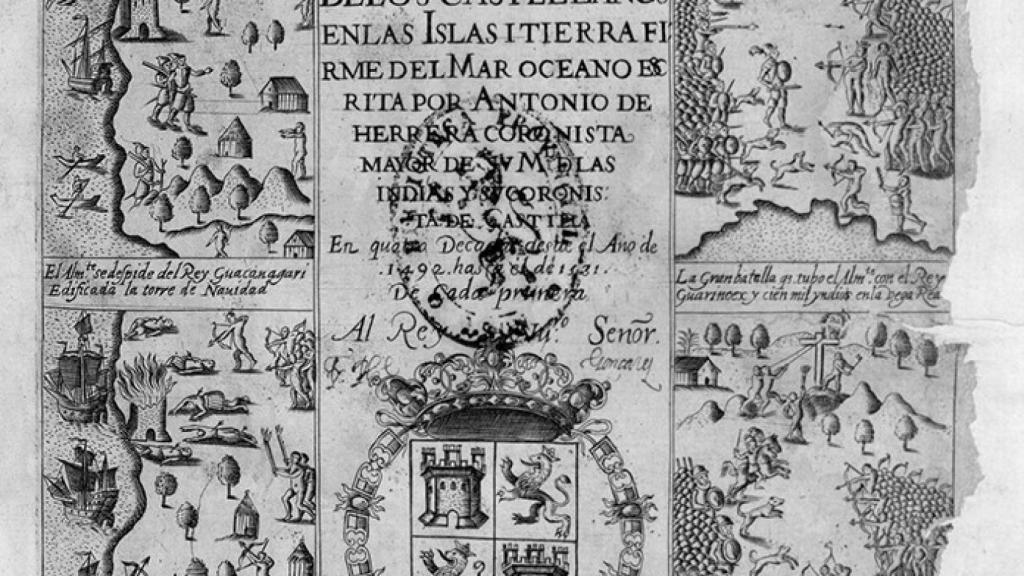 DE LOS CASTELLANOS
EN LAS ISLAS I TIERRA FI
RME DEL MAR OCEANO ESC
RITA POR ANTONIO DE
HERRERA CORONISTA
MAYOR DE SV M.D DLAS
INDIAS Y SV CORONIS
TA DE CASTILLA
En quatro Decadas desde el Año de
1492 hasta el de 1531.
De Cada primera
Al Rey Nu.ro Señor.
El Alm.te se despide del Rey Guacanagari
Edificada la torre de Navidad
La Gran batalla q. tubo el Alm.te con el Rey
Guarinoex y cien mil yndios en la Vega Rea